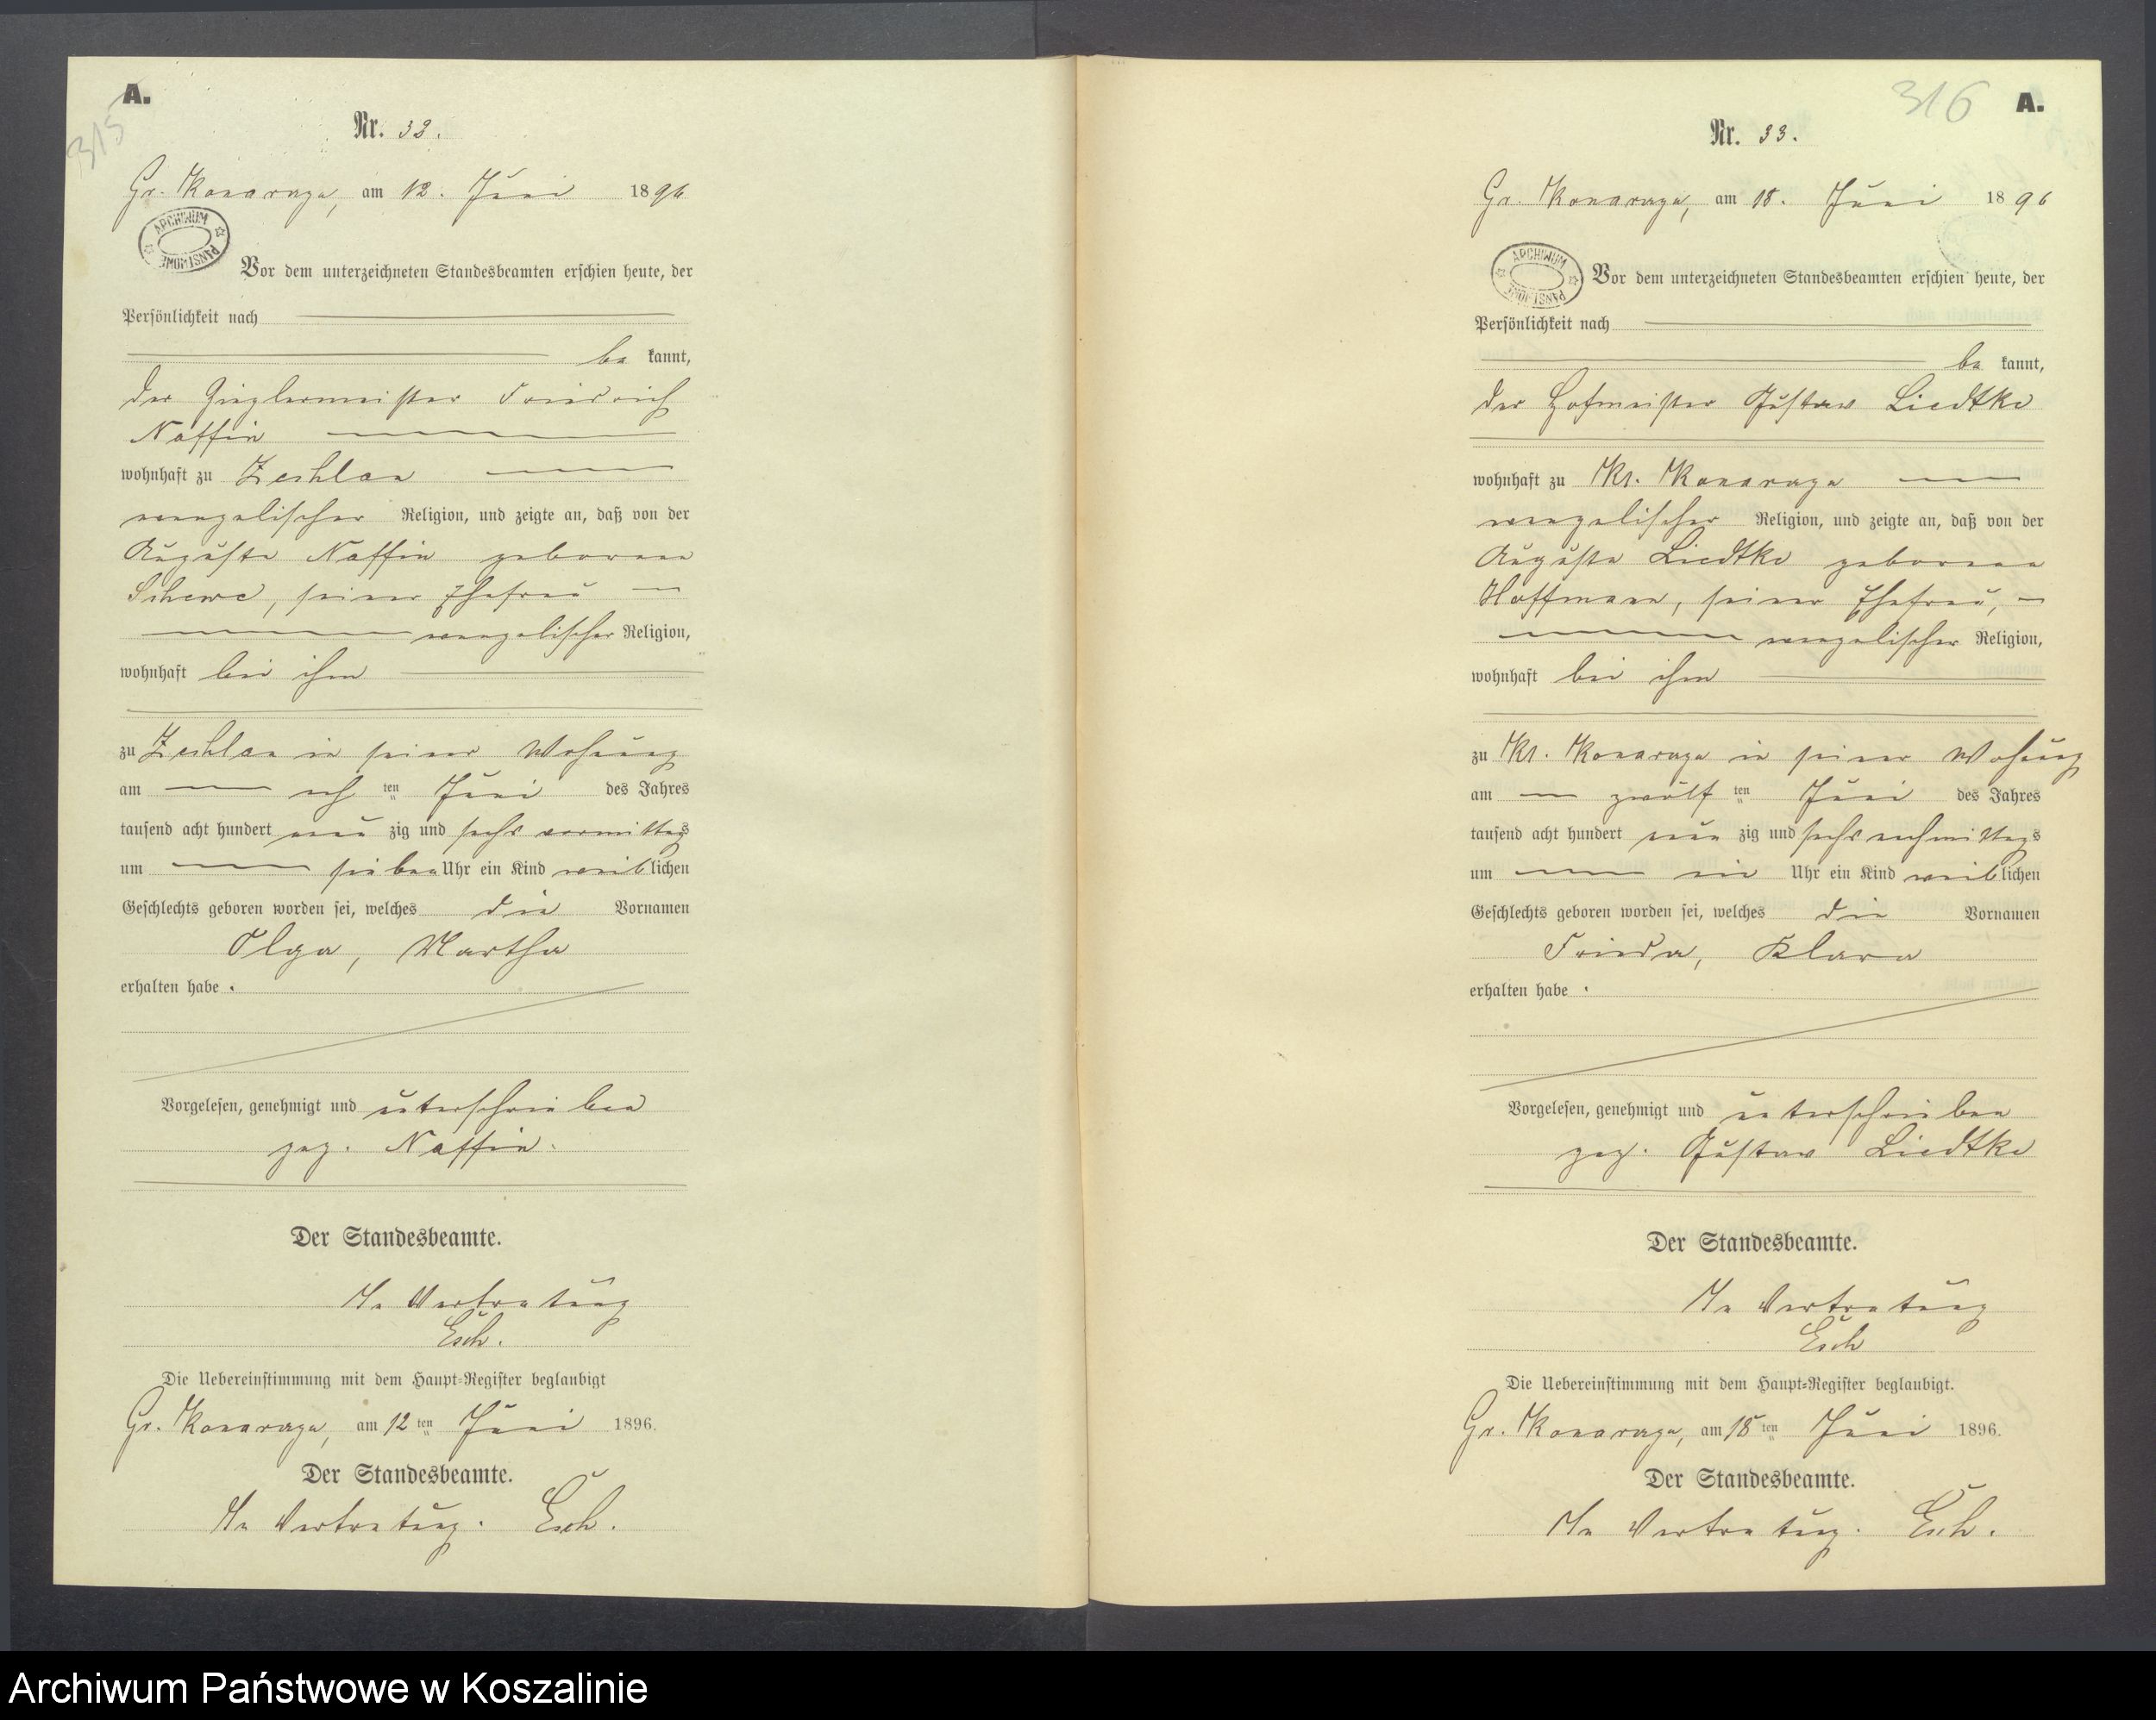 A.
315
Nr. 32.
Gr. Konarzyn, am 12. Juni 1896
ARCHIWUM PAŃSTWOWE
Vor dem unterzeichneten Standesbeamten erschien heute, der
Persönlichkeit nach
be kannt,
der Zieglermeister Friedrich
Naffin
wohnhaft zu Zechlau
evangelischer Religion, und zeigte an, daß von der
Auguste Naffin geborene
Schewe, seiner Ehefrau
evangelischer Religion,
wohnhaft bei ihm
zu Zechlau in seiner Wohnung
am ach ten Juni des Jahres
tausend acht hundert neun zig und sechs vormittags
um sieben Uhr ein Kind weib lichen
Geschlechts geboren worden sei, welches die Vornamen
Olga, Martha
erhalten habe.
Vorgelesen, genehmigt und unterschrieben
gez. Naffin.
Der Standesbeamte.
In Vertretung
Esch.
Die Uebereinstimmung mit dem Haupt-Register beglaubigt
Gr. Konarzyn, am 12 ten Juni 1896.
Der Standesbeamte.
In Vertretung. Esch.
316 A.
Nr. 33.
Gr. Konarzyn, am 18. Juni 1896
ARCHIWUM PAŃSTWOWE
Vor dem unterzeichneten Standesbeamten erschien heute, der
Persönlichkeit nach
be kannt,
der Hofmeister Gustav Liedtke
wohnhaft zu Kl. Konarzyn
evangelischer Religion, und zeigte an, daß von der
Auguste Liedtke geborene
Hoffmann, seiner Ehefrau,
evangelischer Religion,
wohnhaft bei ihm
zu Kl. Konarzyn in seiner Wohnung
am zwölf ten Juni des Jahres
tausend acht hundert neun zig und sechs nachmittags
um ein Uhr ein Kind weib lichen
Geschlechts geboren worden sei, welches die Vornamen
Frieda, Klara
erhalten habe.
Vorgelesen, genehmigt und unterschrieben
gez. Gustav Liedtke
Der Standesbeamte.
In Vertretung
Esch
Die Uebereinstimmung mit dem Haupt-Register beglaubigt.
Gr. Konarzyn, am 18 ten Juni 1896.
Der Standesbeamte.
In Vertretung. Esch.
Archiwum Państwowe w Koszalinie